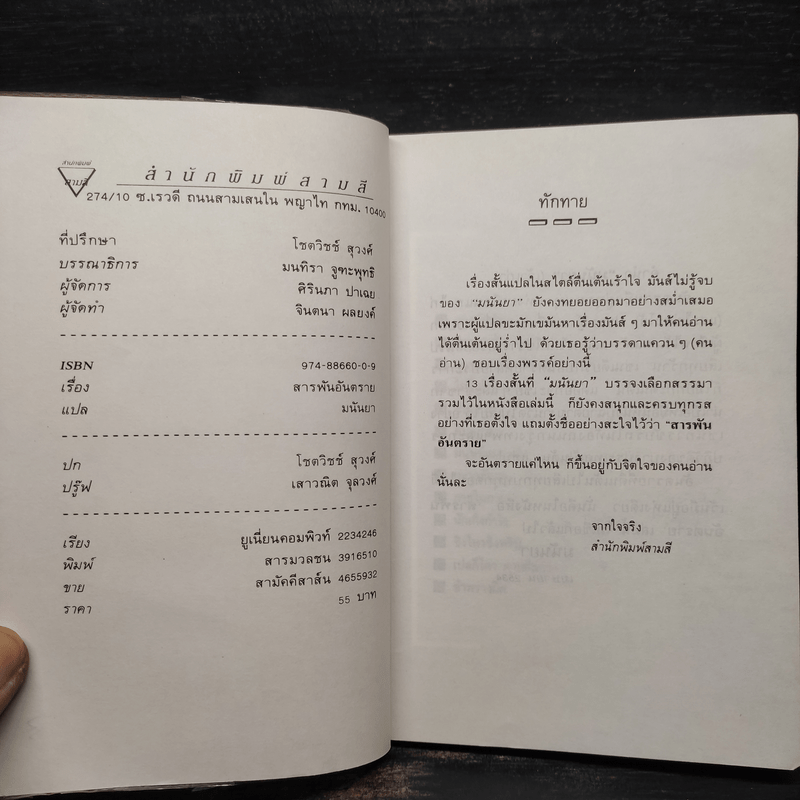 สำนักพิมพ์
สามสี
สำนักพิมพ์สามสี
274/10 ซ.เรวดี ถนนสามเสนใน พญาไท กทม. 10400
ที่ปรึกษา โชตวิชช์ สุวงค์
บรรณาธิการ มนทิรา จูฑะพุทธิ
ผู้จัดการ ศิรินภา ปาเฉย
ผู้จัดทำ จินตนา ผลยงค์
ISBN 974-88660-0-9
เรื่อง สารพันอันตราย
แปล มนันยา
ปก โชตวิชช์ สุวงค์
ปรู๊ฟ เสาวณิต จุลวงศ์
เรียง ยูเนี่ยนคอมพิวท์ 2234246
พิมพ์ สารมวลชน 3916510
ขาย สามัคคีสาส์น 4655932
ราคา 55 บาท
ทักทาย
เรื่องสั้นแปลในสไตล์ตื่นเต้นเร้าใจ มันส์ไม่รู้จบ
ของ “มนันยา” ยังคงทยอยออกมาอย่างสม่ำเสมอ
เพราะผู้แปลขะมักเขม้นหาเรื่องมันส์ ๆ มาให้คนอ่าน
ได้ตื่นเต้นอยู่ร่ำไป ด้วยเธอรู้ว่าบรรดาแควน ๆ (คน
อ่าน) ชอบเรื่องพรรค์อย่างนี้
13 เรื่องสั้นที่ “มนันยา” บรรจงเลือกสรรมา
รวมไว้ในหนังสือเล่มนี้ ก็ยังคงสนุกและครบทุกรส
อย่างที่เธอตั้งใจ แถมตั้งชื่ออย่างสะใจไว้ว่า "สารพัน
อันตราย"
จะอันตรายแค่ไหน ก็ขึ้นอยู่กับจิตใจของคนอ่าน
นั่นละ
จากใจจริง
สำนักพิมพ์สามสี